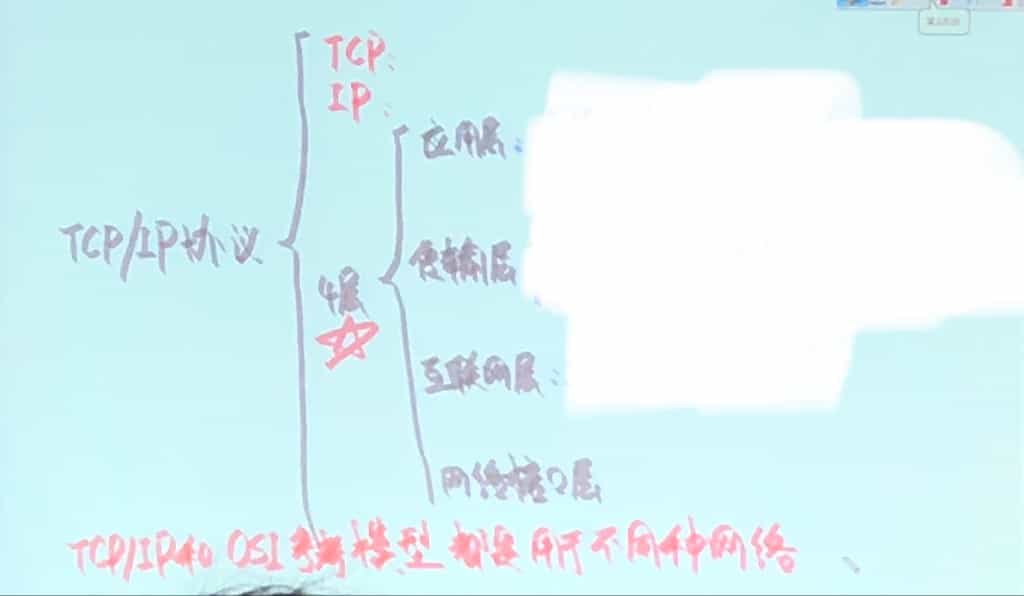 TCP:
IP:
应用层:
TCP/IP协议
传输层
4层
互联网层:
网络接口层
TCP/IP和OSI参考模型都适用于不同种网络